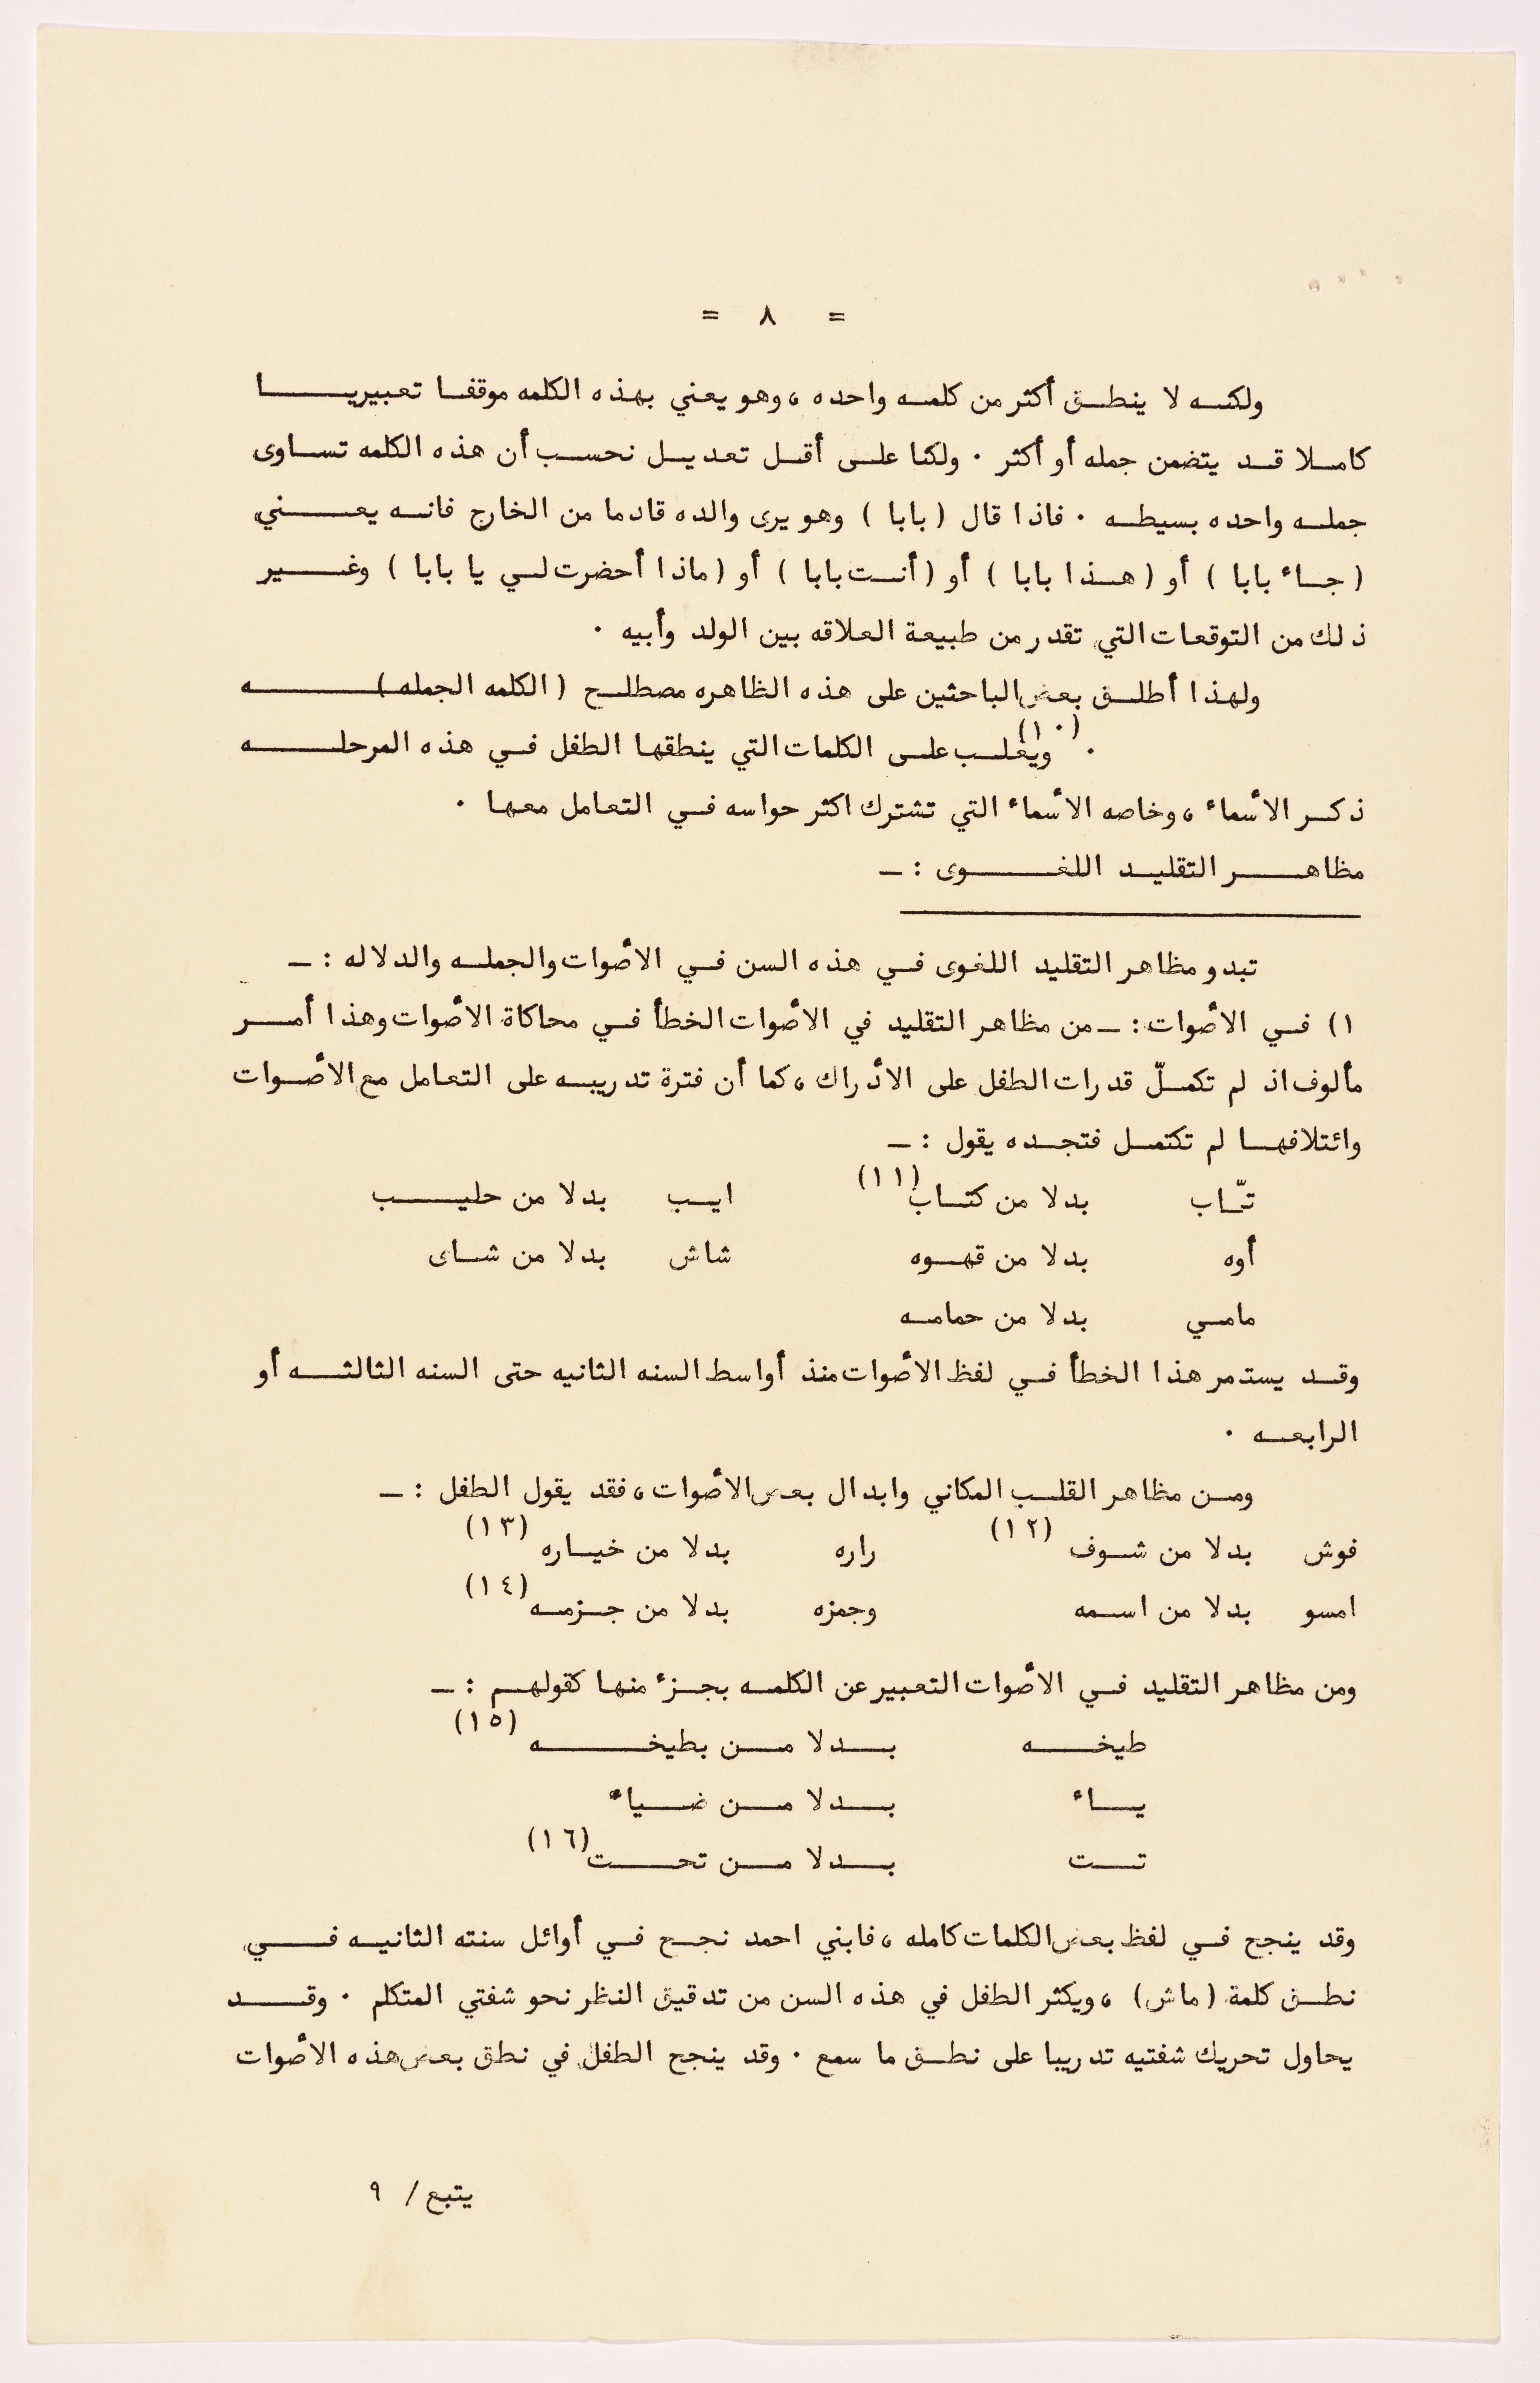 = ٨ =
ولكنه لا ينطق أكثر من كلمه واحده ، وهو يعني بهذه الكلمه موقفا تعبيريا
كاملا قد يتضمن جمله أو أكثر . ولكنا على أقل تعديل نحسب أن هذه الكلمه تساوى
جمله واحده بسيطه . فاذا قال ( بابا ) وهو يرى والده قادما من الخارج فانه يعني
( جاء بابا ) أو ( هذا بابا ) أو ( أنت بابا ) أو ( ماذا أحضرت لي يا بابا ) وغير
ذلك من التوقعات التي تقدر من طبيعة العلاقه بين الولد وأبيه .
ولهذا أطلق بعض الباحثين على هذه الظاهره مصطلح ( الكلمه الجمله )ه
. (١٠) ويغلب على الكلمات التي ينطقها الطفل في هذه المرحله
ذكر الأسماء ، وخاصه الأسماء التي تشترك اكثر حواسه في التعامل معها .
مظاهر التقليد اللغوى : ـ
تبدو مظاهر التقليد اللغوى في هذه السن في الأصوات والجمله والدلاله : ـ
١) في الأصوات : ـ من مظاهر التقليد في الأصوات الخطأ في محاكاة الأصوات وهذا أمر
مألوف اذ لم تكملّ قدرات الطفل على الأدراك ، كما أن فترة تدريبه على التعامل مع الأصوات
وائتلافها لم تكتمل فتجده يقول : ـ
تّاب بدلا من كتاب (١١) ايب بدلا من حليب
أوه بدلا من قهوه شاش بدلا من شاى
مامي بدلا من حمامه
وقد يستمر هذا الخطأ في لفظ الأصوات منذ أواسط السنه الثانيه حتى السنه الثالثه أو
الرابعه .
ومن مظاهر القلب المكاني وابدال بعض الأصوات ، فقد يقول الطفل : ـ
فوش بدلا من شوف (١٢) راره بدلا من خياره (١٣)
امسو بدلا من اسمه وجمزه بدلا من جزمه (١٤)
ومن مظاهر التقليد في الأصوات التعبير عن الكلمه بجزء منها كقولهم : ـ
طيخه بدلا من بطيخه (١٥)
ياء بدلا من ضياء
تت بدلا من تحت (١٦)
وقد ينجح في لفظ بعض الكلمات كامله ، فابني احمد نجح في أوائل سنته الثانيه في
نطق كلمة ( ماش ) ، ويكثر الطفل في هذه السن من تدقيق النظر نحو شفتي المتكلم . وقد
يحاول تحريك شفتيه تدريبا على نطق ما سمع . وقد ينجح الطفل في نطق بعض هذه الأصوات
يتبع / ٩